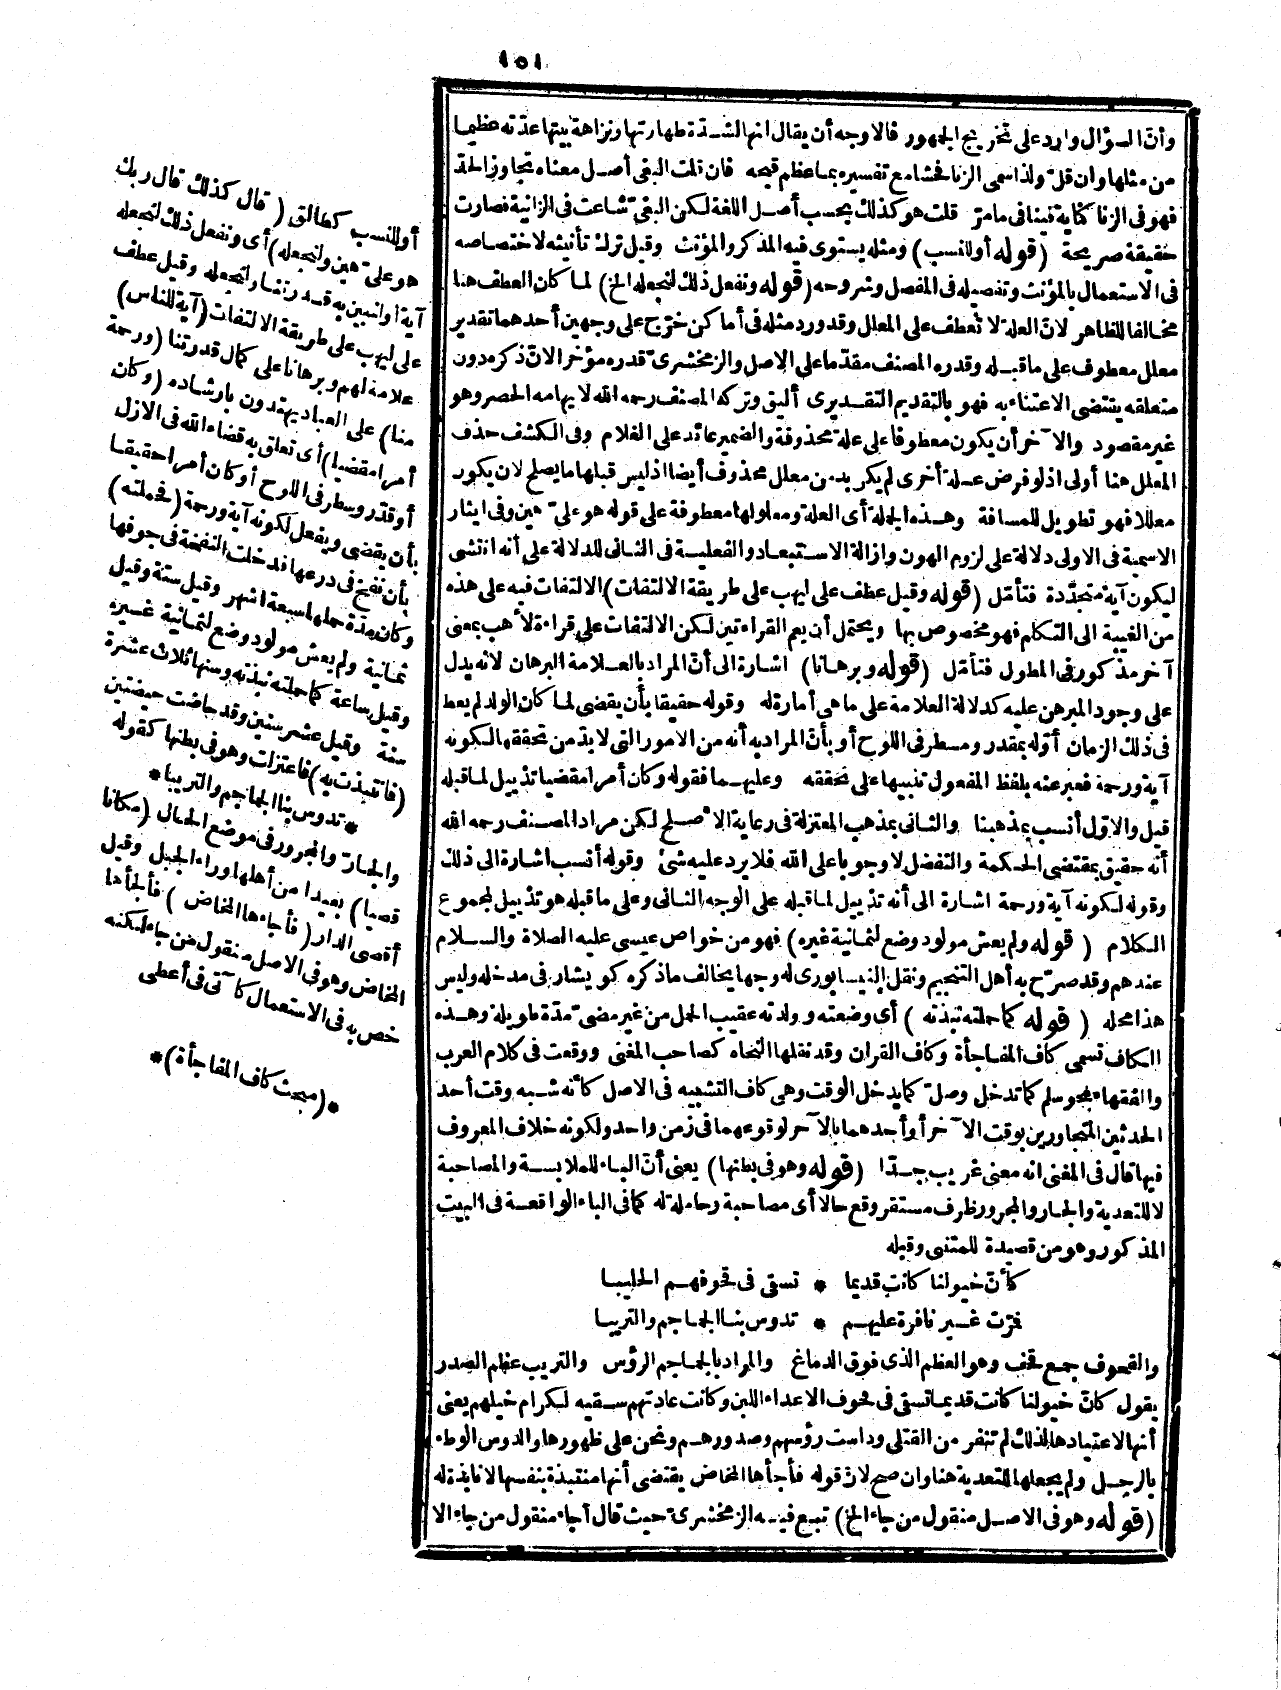 ١٥١
وأنّ السؤال وارد على تخريج الجمهور فالاوجه أن يقال انها لشدة طهارتها ونزاهة بيتها عدّته عظيما
من مثلها وان قلّ ولذا سمى الزنا فحشا مع تفسيره بما عظم قبحه فان قلت البغى أصل معناه تجاوز الحدّ
فهو فى الزنا كناية فينافى مامرّ قلت هو كذلك بحسب أصل اللغة لكن البغىّ شاعت فى الزانية فصارت
حقيقة صريحة (قوله أو للنسب) ومثله يستوى فيه المذكر والمؤنث وقيل ترك تأنيثه لاختصاصه
فى الاستعمال بالمؤنث وتفصيله فى المفصل وشروحه (قوله ونفعل ذلك لنجعله الخ) لما كان العطف هنا
مخالفا للظاهر لانّ العلة لا تعطف على المعلل وقد ورد مثله فى أماكن خرّج على وجهين أحدهما تقدير
معلل معطوف على ماقبله وقدره المصنف مقدّما على الاصل والزمخشرىّ قدره مؤخرا لانّ ذكره دون
متعلقه يقتضى الاعتناء به فهو بالتقديم التقديرى أليق وتركه المصنف رحمه الله لايهامه الحصر وهو
غير مقصود والآخر أن يكون معطوفا على علة محذوفة والضمير عائد على الغلام وفى الكشف حذف
المعلل هنا أولى اذ لو فرض علة أخرى لم يكن بد من معلل محذوف أيضا اذ ليس قبلها ما يصلح لان يكون
معللا فهو تطويل للمسافة وهذه الجملة أى العلة ومعلولها معطوفة على قوله هو علىّ هين وفى ايثار
الاسمية فى الاولى دلالة على لزوم الهون وازالة الاستبعاد والفعلية فى الثانى للدلالة على أنه أنشئ
ليكون آية متجدّدة فتأمّل (قوله وقيل عطف على ليهب على طريقة الالتفات) الالتفات فيه على هذه
من الغيبة الى التكلم فهو مخصوص بها ويحتمل أن يعم القراءتين لكن الالتفات على قراءة لأهب بمعنى
آخر مذكور فى المطول فتأمّل (قوله وبرهانا) اشارة الى أنّ المراد بالعلامة البرهان لانه يدل
على وجود المبرهن عليه كدلالة العلامة على ماهى أمارة له وقوله حقيقا بأن يقضى لما كان الولد لم يعط
فى ذلك الزمان أوّله بمقدر ومسطر فى اللوح أو بأنّ المراد به أنه من الامور التى لابدّ من تحققها لكونه
آية ورحمة فعبر عنه بلفظ المفعول تنبيها على تحققه وعليهما فقوله وكان أمرا مقضيا تذييل لما قبله
قيل والاوّل أنسب بمذهبنا والثانى بمذهب المعتزلة فى رعاية الاصلح لكن مراد المصنف رحمه الله
أنه حقيق بمقتضى الحكمة والتفضل لا وجوبا على الله فلا يرد عليه شئ وقوله أنسب اشارة الى ذلك
وقوله لكونه آية ورحمة اشارة الى أنه تذييل لما قبله على الوجه الثانى وعلى ما قبله هو تذييل لمجموع
الكلام (قوله ولم يعش مولود وضع لثمانية غيره) فهو من خواص عيسى عليه الصلاة والسلام
عندهم وقد صرّح به أهل التنجيم ونقل النيسابورى له وجها يخالف ماذكره كوشيار فى مدخله وليس
هذا محله (قوله كما حملته نبذته) أى وضعته وولدته عقيب الحمل من غير مضىّ مدّة طويلة وهذه
الكاف تسمى كاف المفاجأة وكاف القران وقد نقلها النحاة كصاحب المغنى ووقعت فى كلام العرب
والفقهاء نحو سلم كما تدخل وصلّ كما يدخل الوقت وهى كاف التشبيه فى الاصل كأنه شبه وقت أحد
الحدثين المتجاورين بوقت الآخر أو أحدهما بالآخر لوقوعهما فى زمن واحد ولكونه خلاف المعروف
فيها قال فى المغنى انه معنى غريب جدّا (قوله وهو فى بطنها) يعنى أنّ الباء للملابسة والمصاحبة
لا للتعدية والجار والمجرور ظرف مستقر وقع حالا أى مصاحبة وحاملة له كما فى الباء الواقعة فى البيت
المذكور وهو من قصيدة للمتنبى وقبله
كأنّ خيولنا كانت قديما * تسقى فى قحوفهم الحليبا
فمرّت غير نافرة عليهم * تدوس بنا الجماجم والتريبا
والقحوف جمع قحف وهو العظم الذى فوق الدماغ والمراد بالجماجم الرؤس والتريب عظم الصدر
يقول كأنّ خيولنا كانت قديما تسقى فى قحوف الاعداء اللبن وكانت عادتهم سقيه لكرام خيلهم يعنى
أنها لاعتيادها لذلك لم تنفر من القتلى وداست رؤسهم وصدورهم ونحن على ظهورها والدوس الوطء
بالرجل ولم يجعلها للتعدية هنا وان صح لان قوله فأجأها المخاض يقتضى أنها منتبذة بنفسها لا نابذة له
(قوله وهو فى الاصل منقول من جاء الخ) تبع فيه الزمخشرىّ حيث قال أجاء منقول من جاء الا
أو للنسب كطالق (قال كذلك قال ربك
هو علىّ هين ولنجعله) أى ونفعل ذلك لنجعله
آية أو لنبين به قدرتنا ولنجعله وقيل عطف
على ليهب على طريقة الالتفات (آية للناس)
علامة لهم وبرهانا على كمال قدرتنا (ورحمة
منا) على العباد يهتدون بارشاده (وكان
أمرا مقضيا) أى تعلق به قضاء الله فى الازل
أو قدّر وسطر فى اللوح أو كان أمرا حقيقا
بأن يقضى ويفعل لكونه آية ورحمة (فحملته)
بأن نفخ فى درعها فدخلت النفخة فى جوفها
وكان مدّة حملها سبعة أشهر وقيل ستة وقيل
ثمانية ولم يعش مولود وضع لثمانية غيره
وقيل ساعة كما حملته نبذته وسنها ثلاث عشرة
سنة وقيل عشر سنين وقد حاضت حيضتين
(فانتبذت به) فاعتزلت وهو فى بطنها كقوله
* تدوس بنا الجماجم والتريبا *
والجارّ والمجرور فى موضع الحال (مكانا
قصيا) بعيدا من أهلها وراء الجبل وقيل
أقصى الدار (فأجاءها المخاض) فألجأها
المخاض وهو فى الاصل منقول من جاء لكنه
خص به فى الاستعمال كآتى فى أعطى
* (مبحث كاف المفاجأة) *